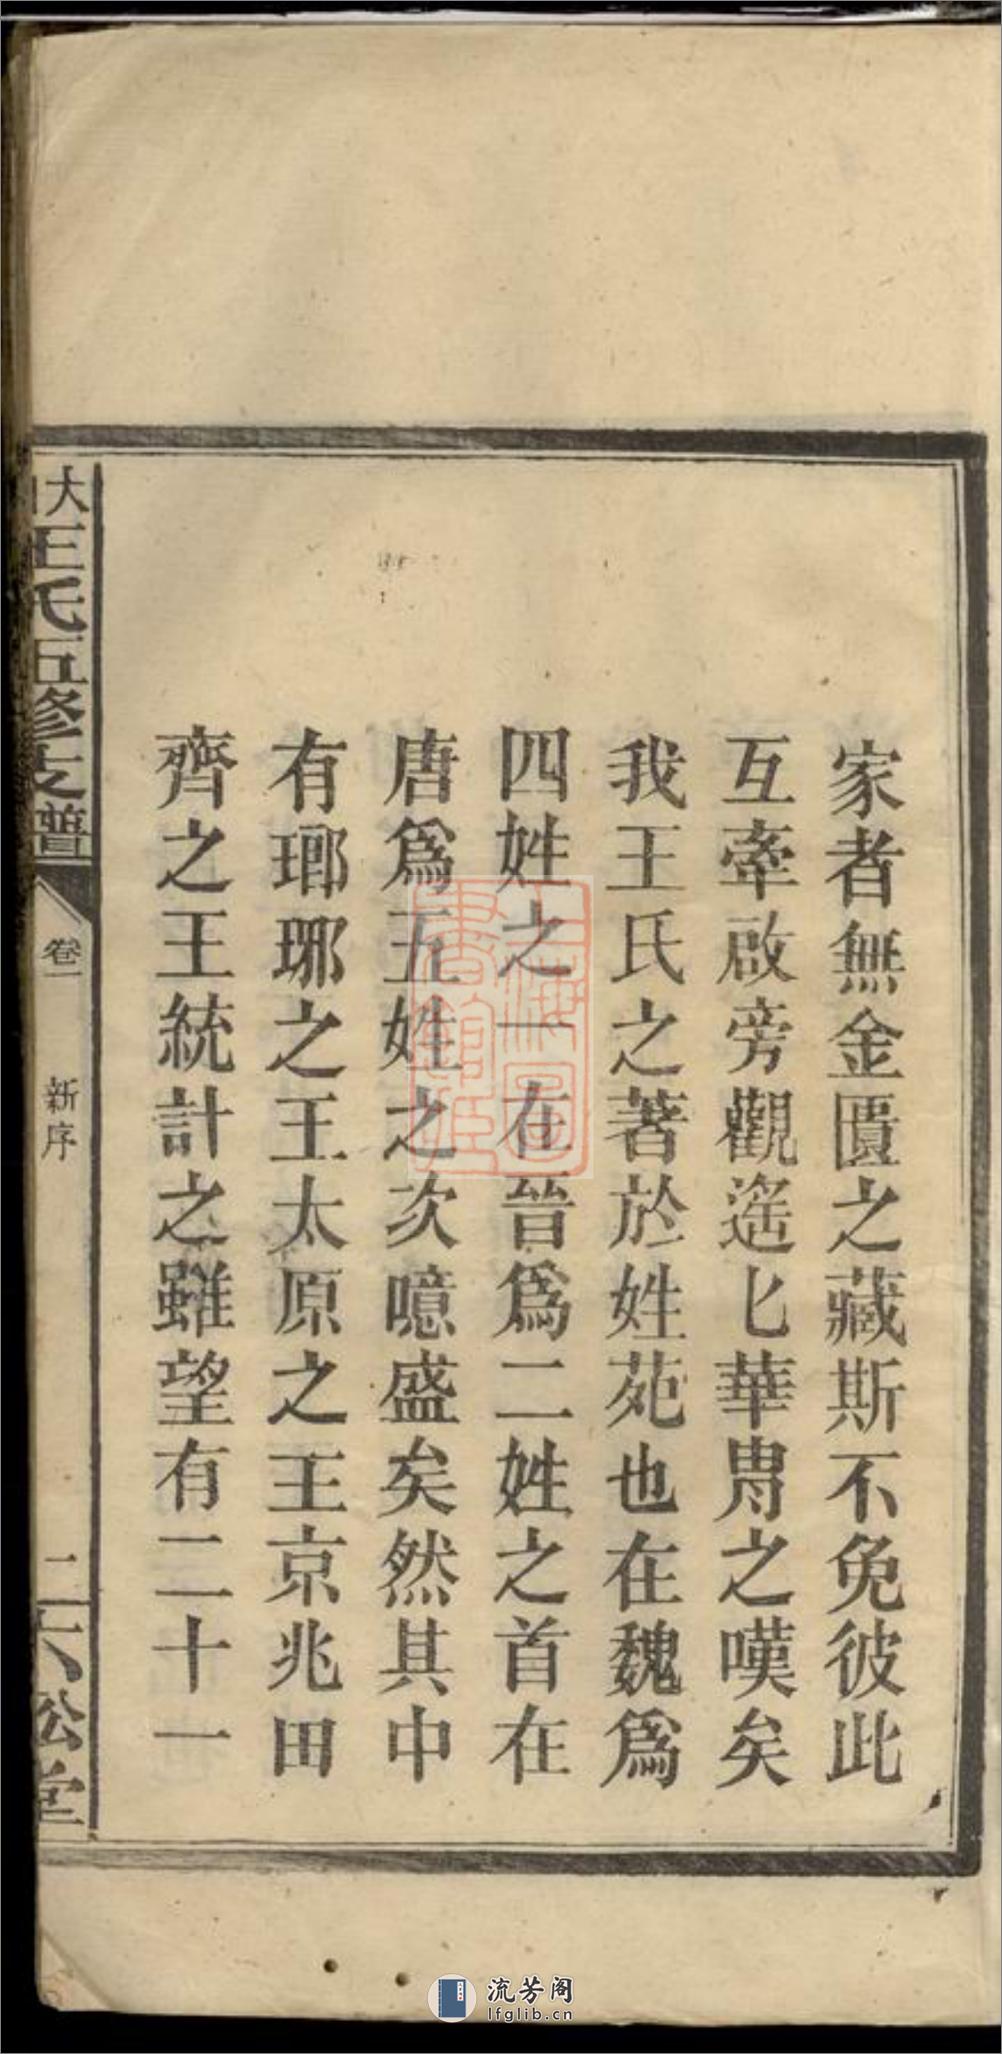 家者無金匱之藏斯不免彼此
互牽啟旁觀遙匕華胄之嘆矣
我王氏之著於姓苑也在魏爲
四姓之一在晉爲二姓之首在
唐爲五姓之次噫盛矣然其中
有瑯琊之王太原之王京兆田
齊之王統計之雖望有二十一
大
王氏五修支譜
卷一
新序
二
松堂
上海圖
書館藏
流芳阁
lfglib.cn